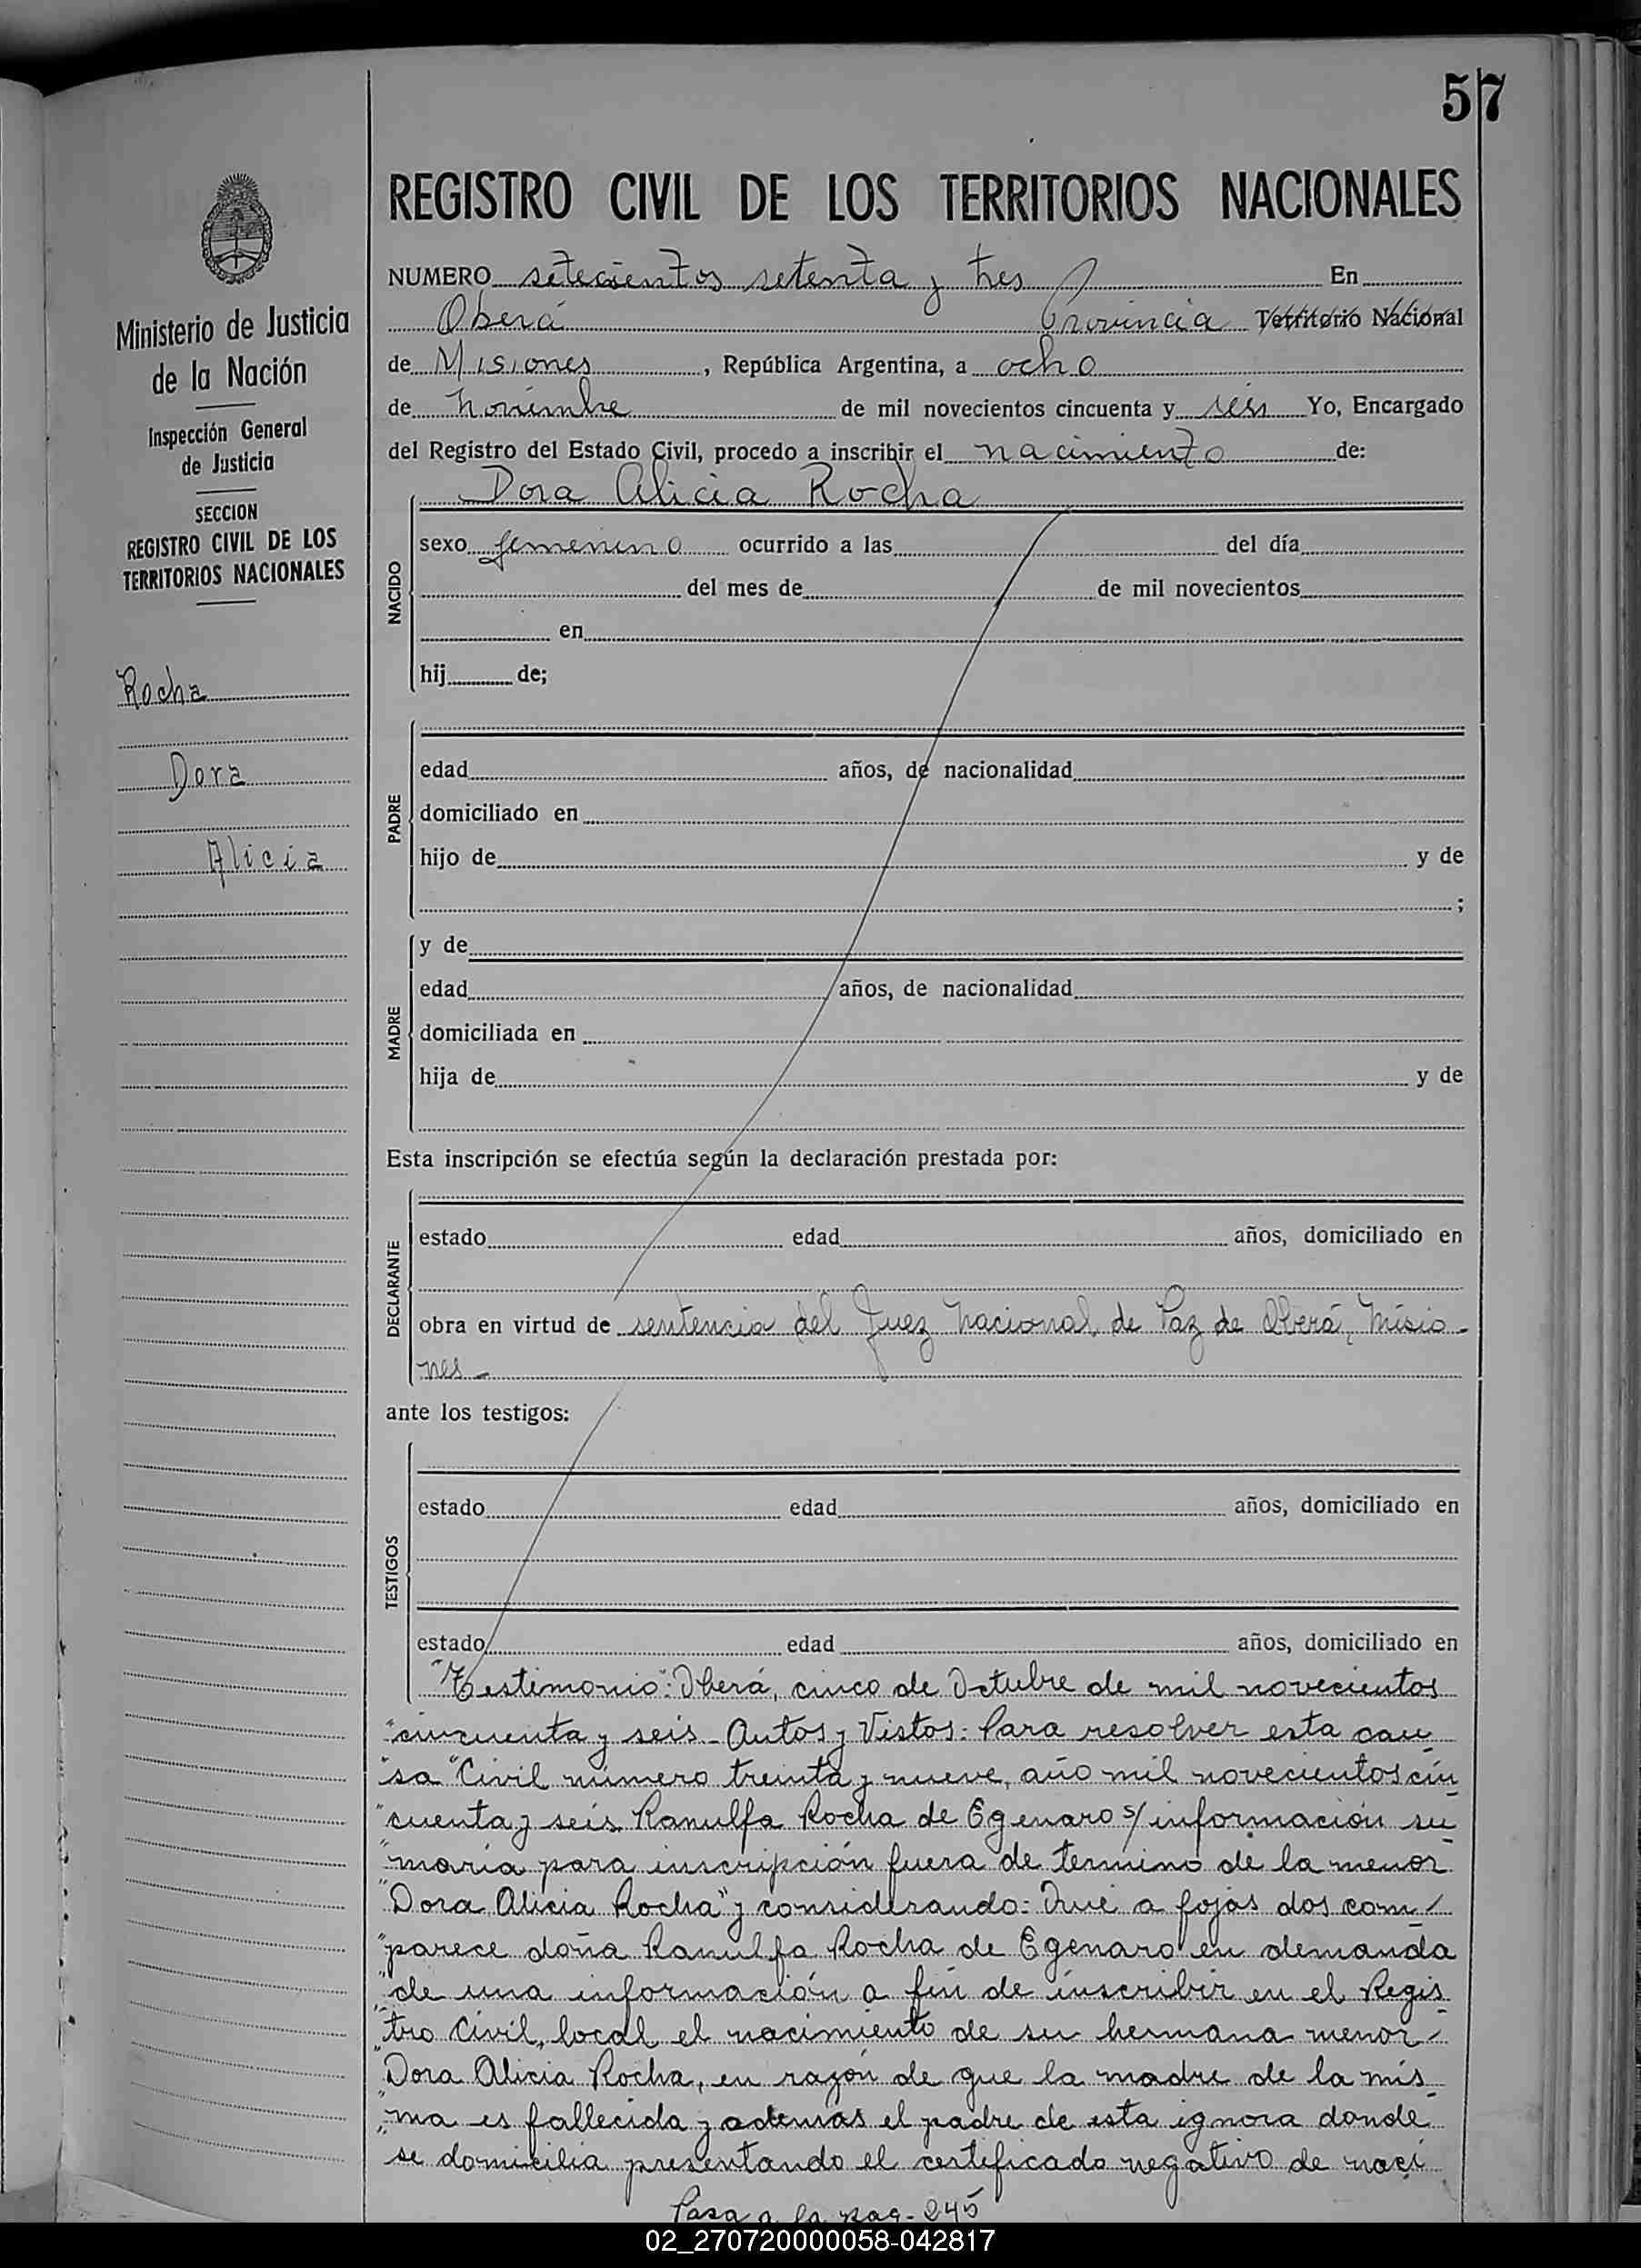 57
REGISTRO CIVIL DE LOS TERRITORIOS NACIONALES
Ministerio de Justicia
de la Nación
Inspección General
de Justicia
SECCION
REGISTRO CIVIL DE LOS
TERRITORIOS NACIONALES
Rocha
Dora
Alicia
NUMERO setecientos setenta y tres En
Oberá Provincia Territorio Nacional
de Misiones, República Argentina, a ocho
de noviembre de mil novecientos cincuenta y seis Yo, Encargado
del Registro del Estado Civil, procedo a inscribir el nacimiento de:
Dora Alicia Rocha
NACIDO
sexo femenino ocurrido a las del día
del mes de de mil novecientos
en
hij de;
PADRE
edad años, de nacionalidad
domiciliado en
hijo de y de
;
MADRE
y de
edad años, de nacionalidad
domiciliada en
hija de y de
Esta inscripción se efectúa según la declaración prestada por:
DECLARANTE
estado edad años, domiciliado en
obra en virtud de sentencia del Juez Nacional de Paz de Oberá, Misio-
nes-
ante los testigos:
TESTIGOS
estado edad años, domiciliado en
estado edad años, domiciliado en
"Testimonio": Oberá, cinco de Octubre de mil novecientos
"cincuenta y seis- Autos y Vistos: Para resolver esta cau-
"sa "Civil número treinta y nueve, año mil novecientos cin-
"cuenta y seis Ranulfa Rocha de Egenaro s/ información su-
"maria para inscripción fuera de termino de la menor
"Dora Alicia Rocha" y considerando: Que a fojas dos com-
"parece doña Ranulfa Rocha de Egenaro en demanda
"de una información a fin de inscribir en el Regis-
"tro Civil, local el nacimiento de su hermana menor-
"Dora Alicia Rocha, en razón de que la madre de la mis-
"ma es fallecida y además el padre de esta ignora donde
se domicilia presentando el certificado negativo de naci-
Pasa a la pag- 245
02_270720000058-042817